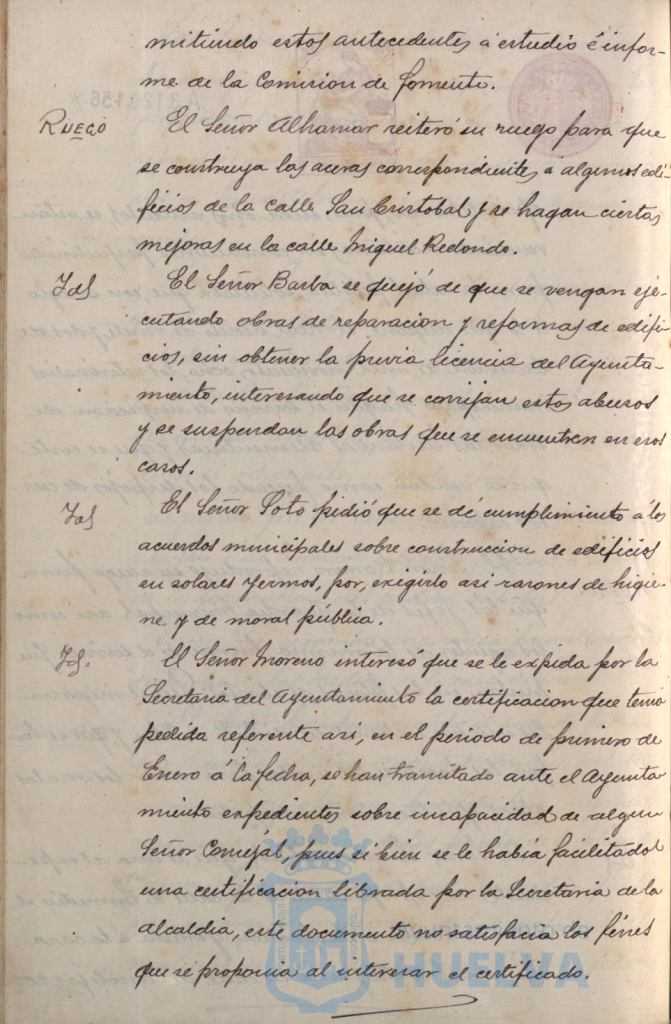 mitiendo estos antecedentes á estudio é infor-
me de la Comision de fomento.
RUEGO
El Señor Alhamar reiteró su ruego para que
se construya las aceras correspondientes á algunos edi-
ficios de la calle San Cristobal y se hagan ciertas
mejoras en la calle Miguel Redondo.
Id
El Señor Barba se quejó de que se vengan eje-
cutando obras de reparacion y reformas de edifi-
cios, sin obtener la previa licencia del Ayunta-
miento, interesando que se corrijan estos abusos
y se suspendan las obras que se encuentren en esos
casos.
Id
El Señor Soto pidió que se dé cumplimiento á los
acuerdos municipales sobre construccion de edificios
en solares yermos, por, exigirlo asi razones de higie-
ne y de moral pública.
Id.
El Señor Moreno interesó que se le expida por la
Secretaria del Ayuntamiento la certificacion que tenia
pedida referente asi, en el periodo de primero de
Enero á la fecha, se han tramitado ante el Ayunta
miento expedientes sobre incapacidad de algun
Señor Concejal, pues si bien se le habia facilitado
una certificacion librada por la Secretaria de la
alcaldia, este documento no satisfacia los fines
que se proponia al interesar el certificado.
HUELVA